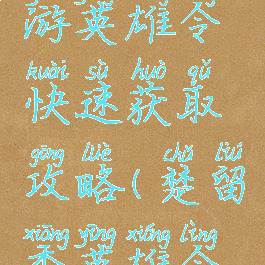 游英雄令
kuài sù huò qǔ
快速获取
gōng lüè chǔ liú
攻略(楚留
xiāng yīng xióng lìng
香英雄令